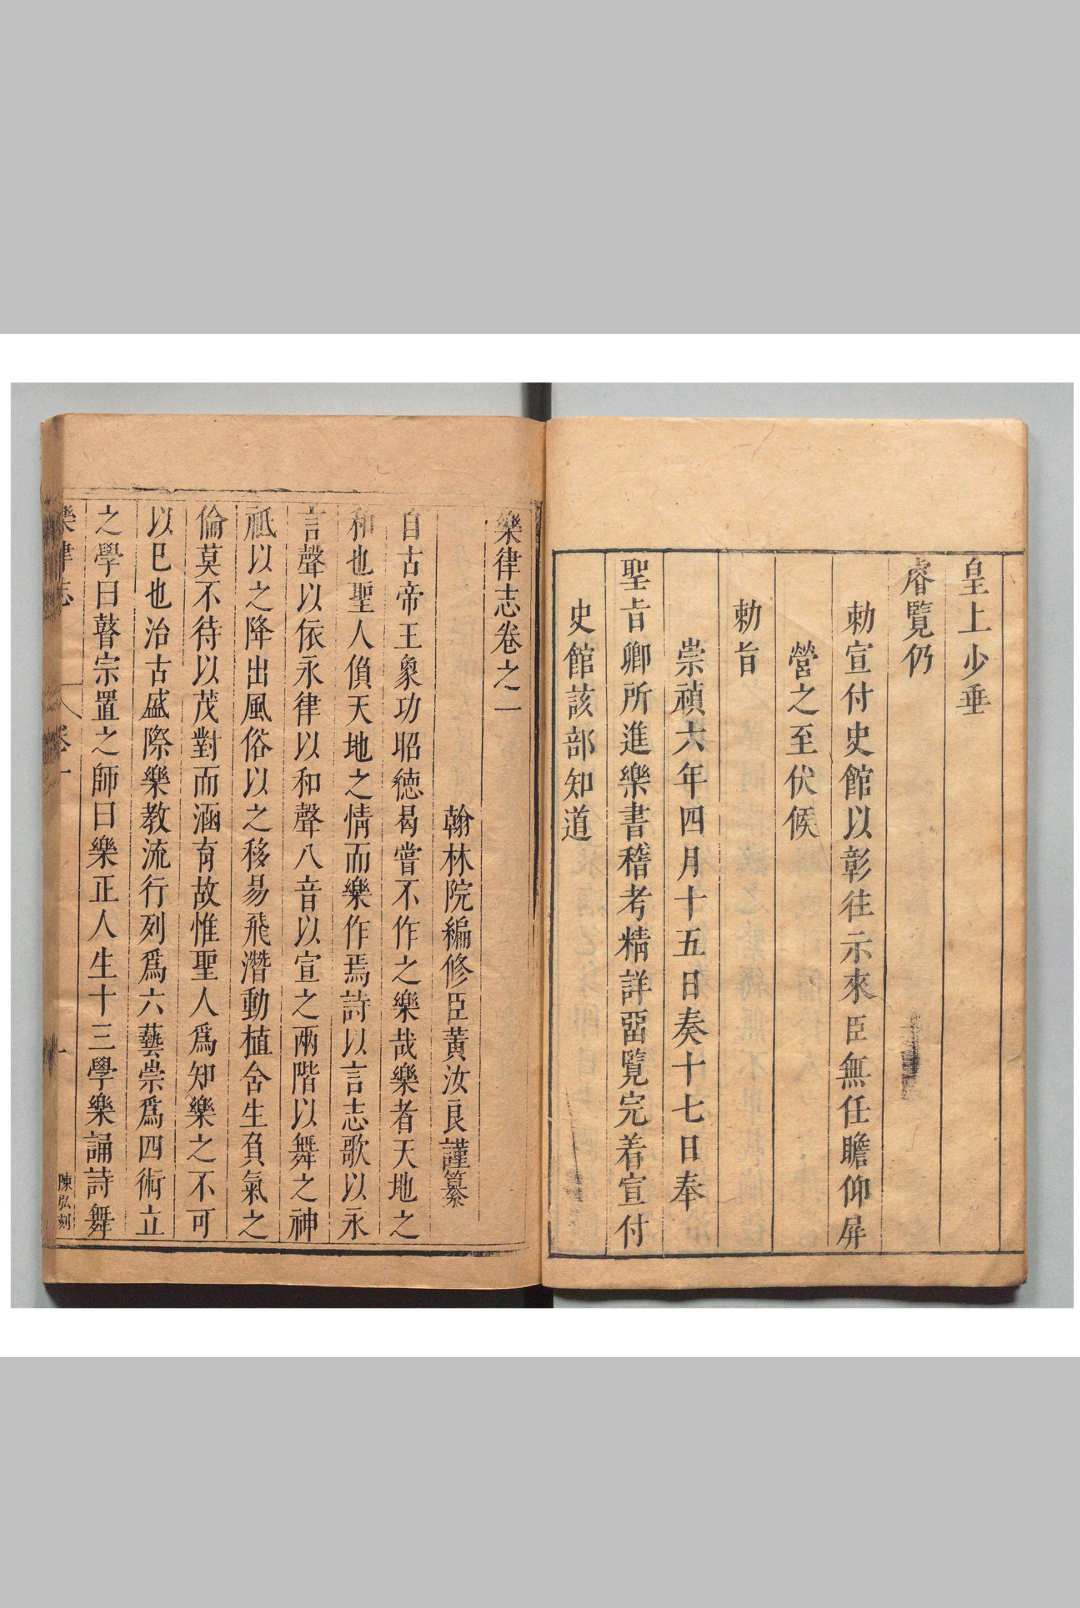 皇上少垂
睿覽仍
勅宣付史館以彰往示來臣無任瞻仰屏
營之至伏候
勅旨
崇禎六年四月十五日奏十七日奉
聖旨卿所進樂書稽考精詳畱覽完着宣付
史館該部知道
樂律志卷之二
翰林院編修臣黃汝良謹纂
自古帝王象功昭德曷嘗不作之樂哉樂者天地之
和也聖人負天地之情而樂作焉詩以言志歌以永
言聲以依永律以和聲八音以宣之兩階以舞之神
祗以之降出風俗以之移易飛潛動植含生負氣之
倫莫不待以茂對而涵育故惟聖人爲知樂之不可
以已也治古盛際樂教流行列爲六藝崇爲四術立
之學曰瞽宗置之師曰樂正人生十三學樂誦詩舞
樂律志
卷
陳弘刻